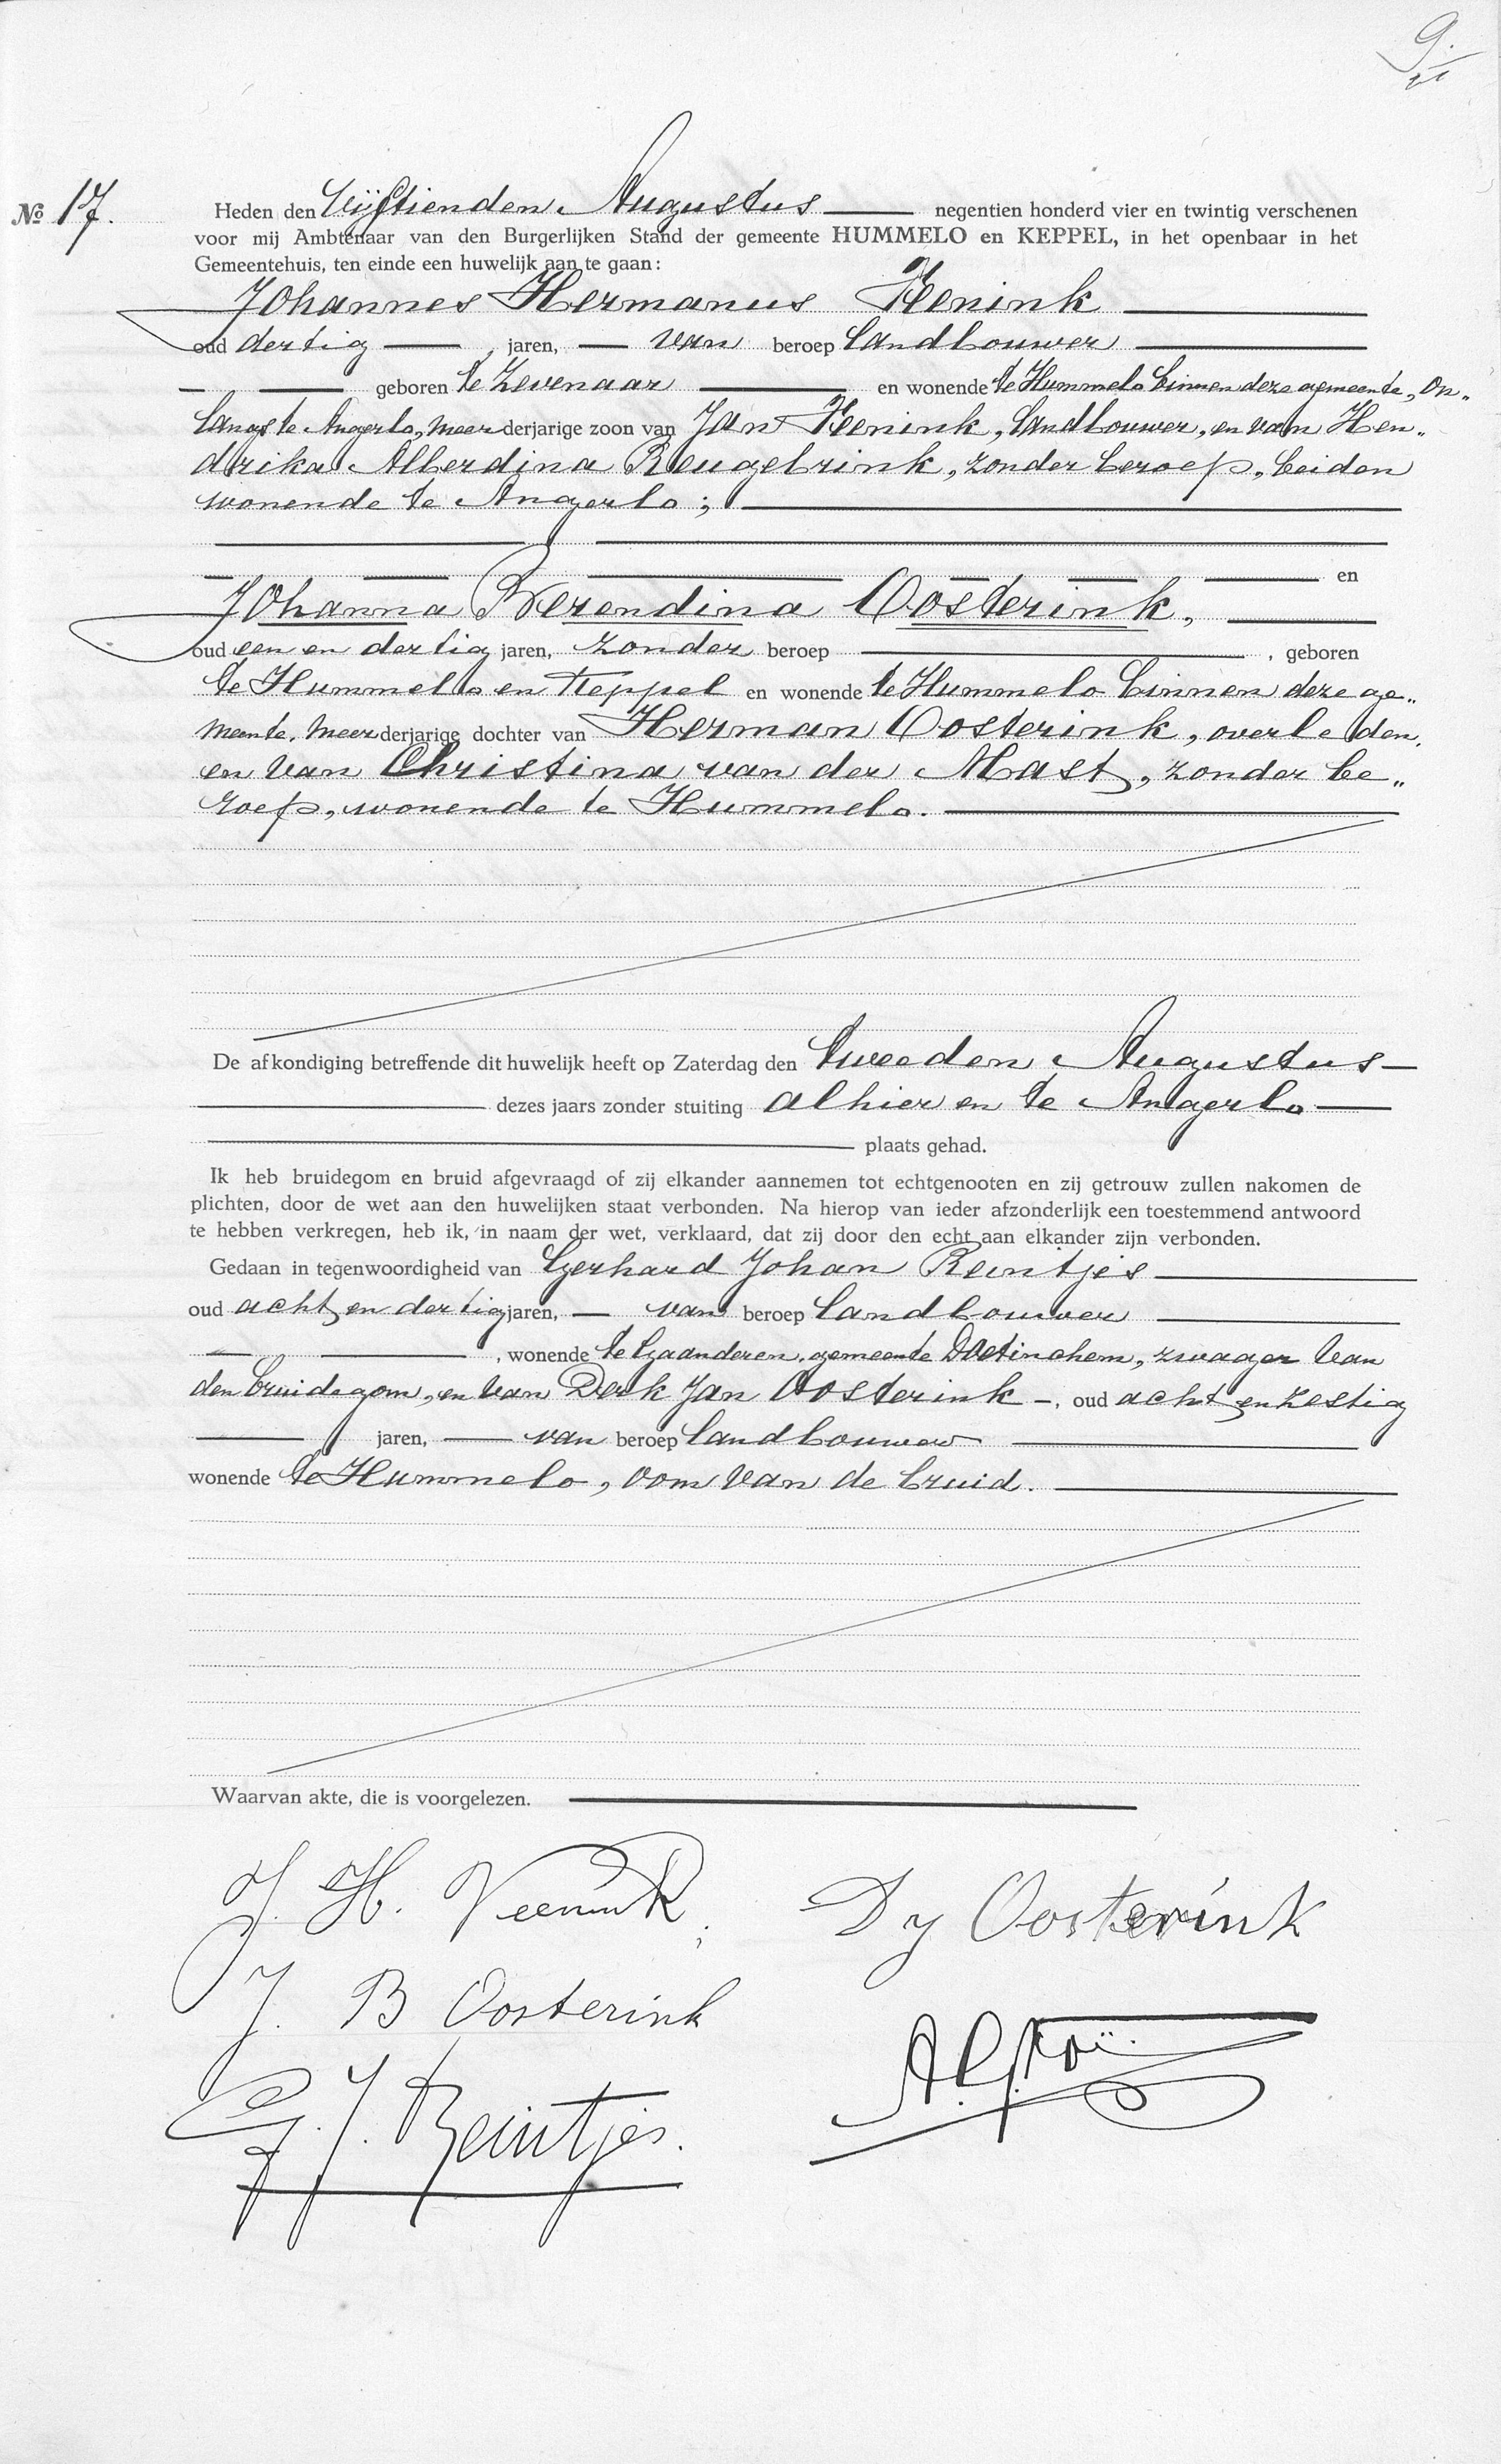 9.
No 17.
Heden den vijftienden Augustus negentien honderd vier en twintig verschenen
voor mij Ambtenaar van den Burgerlijken Stand der gemeente HUMMELO en KEPPEL, in het openbaar in het
Gemeentehuis, ten einde een huwelijk aan te gaan:
Johannes Hermanus Veenink
oud dertig, jaren, van beroep landbouwer
geboren te Zevenaar en wonende te Hummelo binnen deze gemeente, on„
langs te Angerlo, meerderjarige zoon van Jan Veenink, landbouwer, en van Hen„
drika Alberdina Reugebrink, zonder beroep, beiden
wonende te Angerlo;
en
Johanna Berendina Oosterink,
oud een en dertig jaren, zonder beroep, geboren
te Hummelo en Keppel en wonende te Hummelo binnen deze ge„
meente, meerderjarige dochter van Herman Oosterink, overleden,
en van Christina van der Mast, zonder be„
roep, wonende te Hummelo.
De afkondiging betreffende dit huwelijk heeft op Zaterdag den tweeden Augustus
dezes jaars zonder stuiting alhier en te Angerlo
plaats gehad.
Ik heb bruidegom en bruid afgevraagd of zij elkander aannemen tot echtgenooten en zij getrouw zullen nakomen de
plichten, door de wet aan den huwelijken staat verbonden. Na hierop van ieder afzonderlijk een toestemmend antwoord
te hebben verkregen, heb ik, in naam der wet, verklaard, dat zij door den echt aan elkander zijn verbonden.
Gedaan in tegenwoordigheid van Gerhard Johan Reintjes
oud acht en dertig jaren, van beroep landbouwer
, wonende te Gaanderen, gemeente Doetinchem, zwager van
den bruidegom, en van Derk Jan Oosterink, oud acht en zestig
jaren, van beroep landbouwer
wonende te Hummelo, oom van de bruid.
Waarvan akte, die is voorgelezen.
J. H. Veenink
Dj Oosterink
J. B Oosterink
G. J. Reintjes.